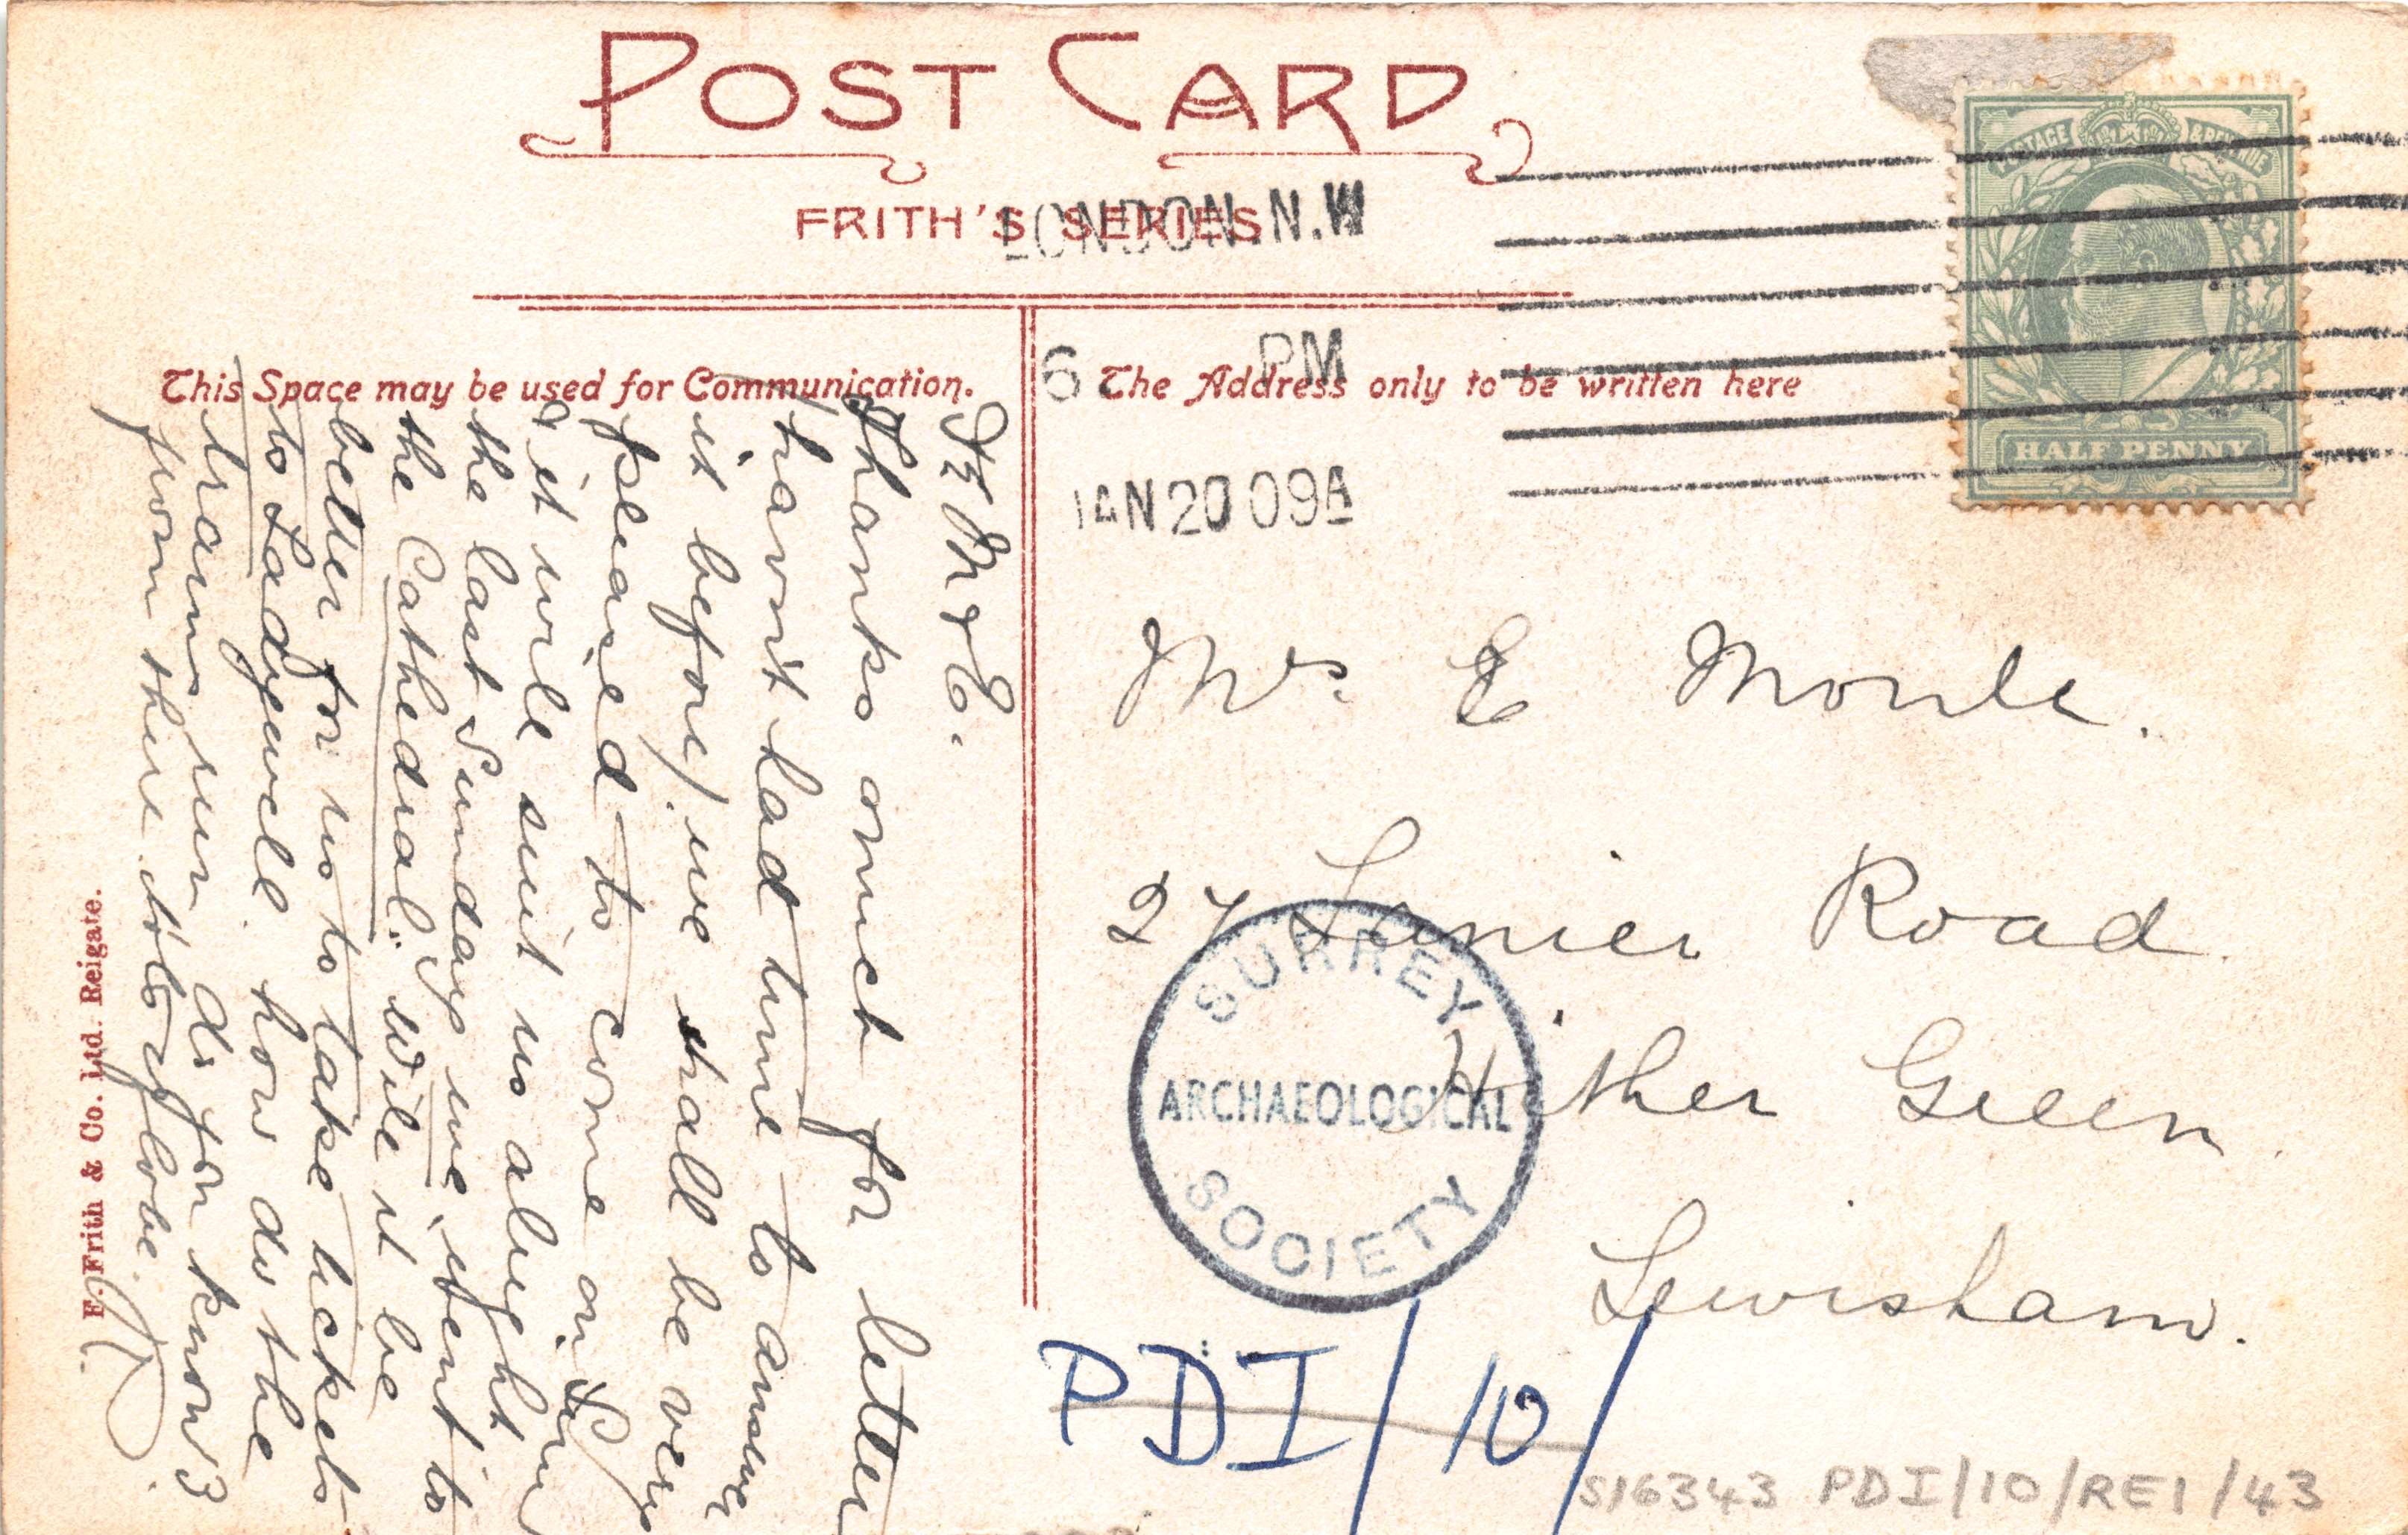 POST CARD
FRITH'S SERIES
LONDON. N.W
6 PM
JAN 20 09A
POSTAGE & REVENUE
HALF PENNY
This Space may be used for Communication.
The Address only to be written here
Dr M & E.
Thanks much for letter
(havn't had time to answer
it before) we shall be very
pleased to come on Sun
& it will suit us alright
the last Sunday we went to
the Cathedral. Will it be
better for us to take tickets
to Ladywell. how do the
trams run do you know?
from there
love
F. Frith & Co. Ltd. Reigate.
Mrs E
27 Lanier Road
Hither Green
Lewisham.
SURREY
ARCHAEOLOGICAL
SOCIETY
PDI/10/
S16343 PDI/10/REI/43